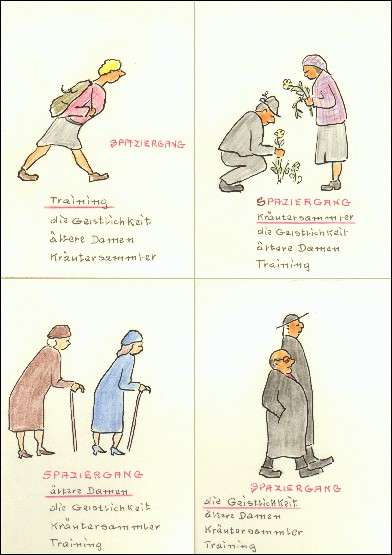 SPAZIERGANG
Training
die Geistlichkeit
ältere Damen
Kräutersammler
SPAZIERGANG
Kräutersammler
die Geistlichkeit
ältere Damen
Training
SPAZIERGANG
ältere Damen
die Geistlichkeit
Kräutersammler
Training
SPAZIERGANG
die Geistlichkeit
ältere Damen
Kräutersammler
Training